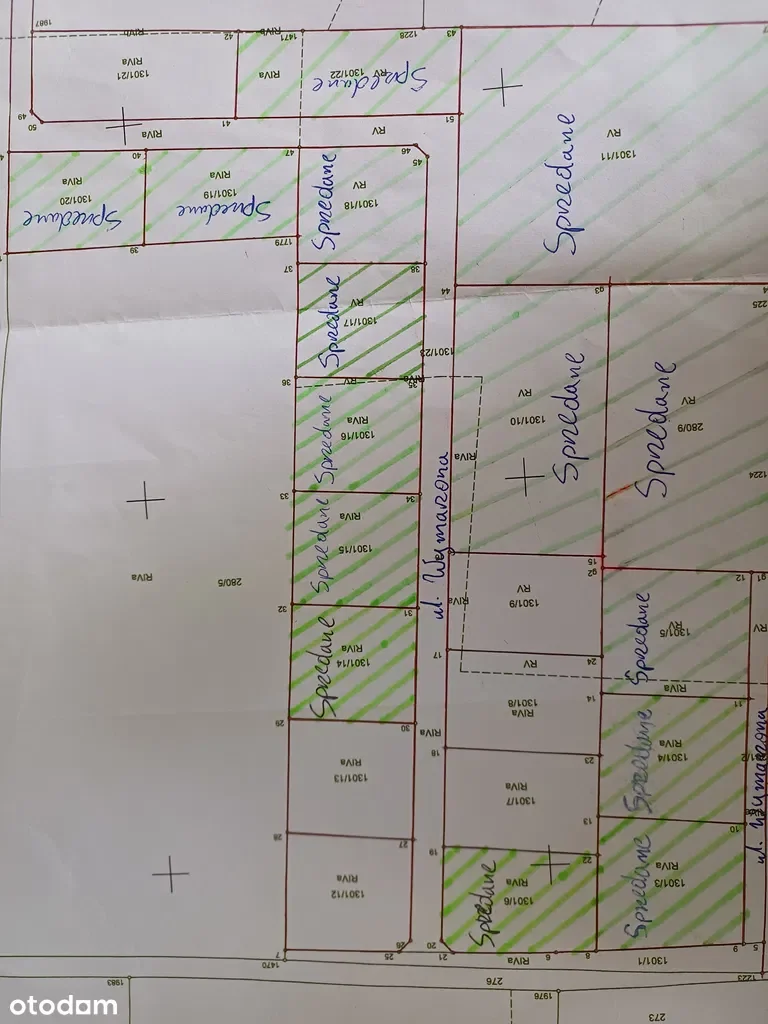 1987
RIVb
42
RIVb
1471
1228
43
RIVa
1301/21
RIVa
RV
1301/22
Sprzedane
RV
1301/11
Sprzedane
49
50
RIVa
41
RV
51
40
47
46
45
RIVa
1301/20
Sprzedane
RIVa
1301/19
Sprzedane
RV
1301/18
Sprzedane
39
1779
37
38
44
g3
225
RV
1301/17
Sprzedane
1301/23
36
RV
RIVa
35
RIVa
1301/16
Sprzedane
RV
1301/10
Sprzedane
RV
280/9
Sprzedane
RIVa
1224
33
34
RIVa
1301/15
Sprzedane
ul. Wymarzona
15
g2
12
g1
RIVa
280/5
RIVa
RV
1301/9
RV
1301/5
Sprzedane
RV
32
31
RIVa
1301/14
Sprzedane
17
RV
24
RIVa
29
30
RIVa
RIVa
1301/8
14
11
18
23
RIVa
1301/4
Sprzedane
RIVa
1301/13
RIVa
1301/7
ul. Wymarzona
28
27
19
22
13
10
RIVa
1301/12
RIVa
1301/6
Sprzedane
RIVa
1301/3
Sprzedane
7
1470
25
26
20
21
RIVa
6
8
1301/1
9
5
1223
1983
276
1976
273
otodom